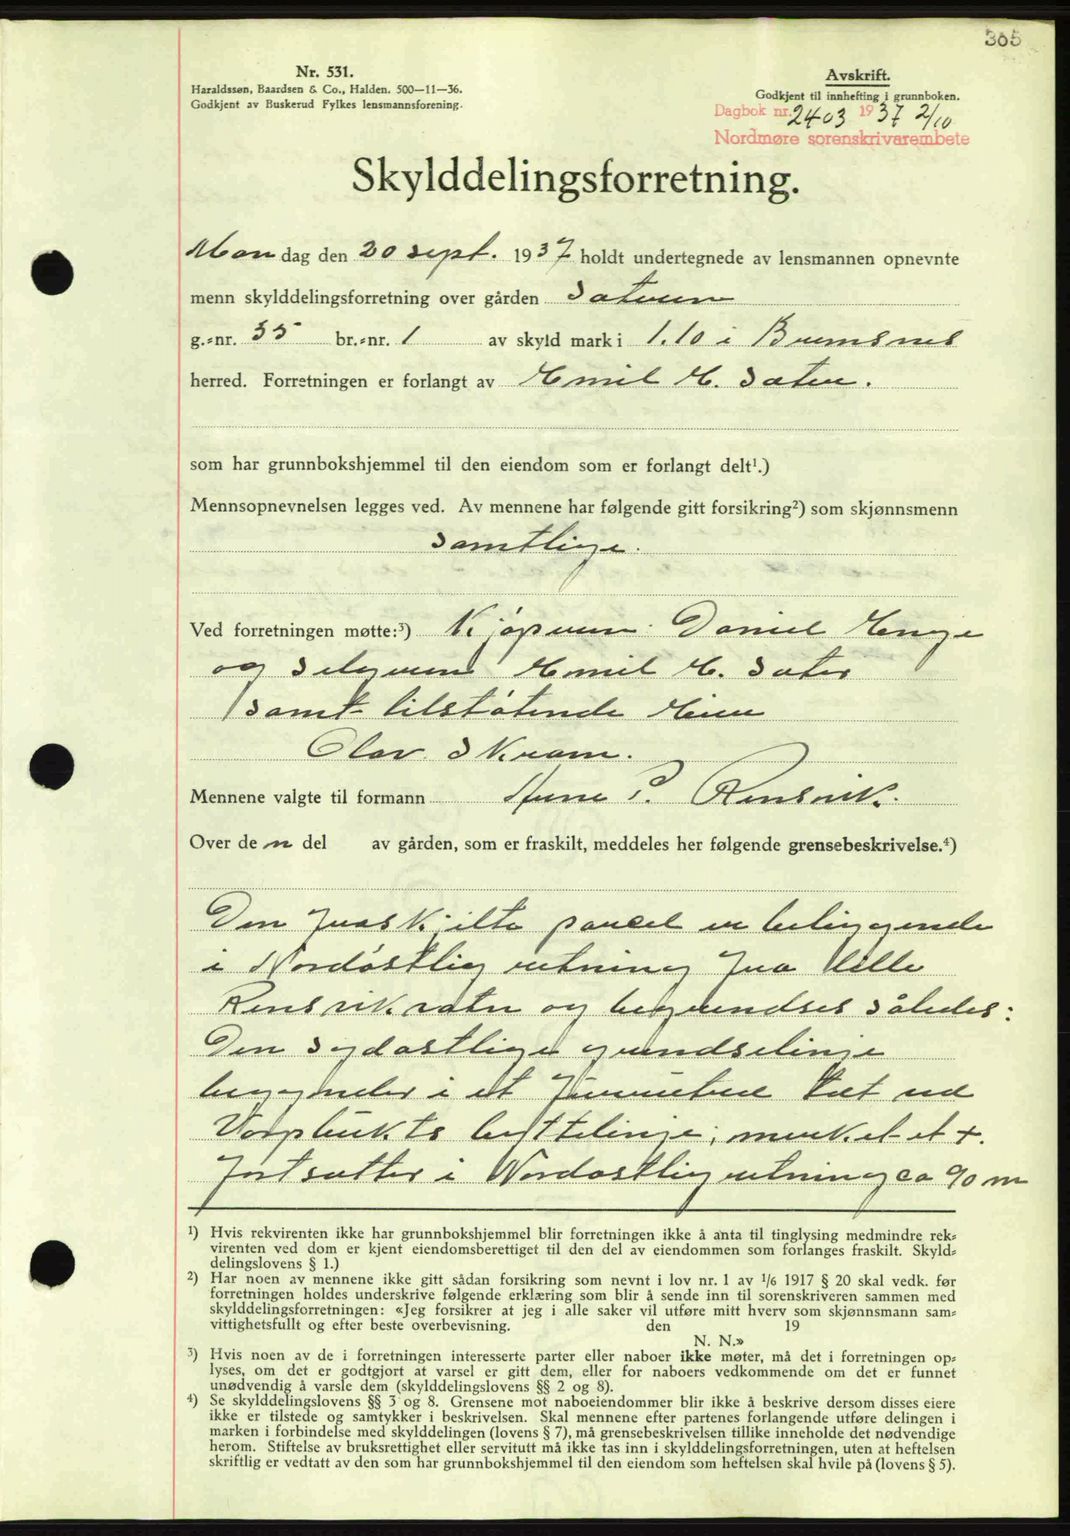 305
Nr. 531.
Haraldssøn, Baardsen & Co., Halden. 500—11—36.
Godkjent av Buskerud Fylkes lensmannsforening.
Avskrift.
Godkjent til innhefting i grunnboken.
Dagbok nr. 2403 1937 2/10
Nordmøre sorenskrivarembete
Skylddelingsforretning.
Mandag den 20 sept. 1937 holdt undertegnede av lensmannen opnevnte
menn skylddelingsforretning over gården Sateren
g.=nr. 35 br.=nr. 1 av skyld mark i 1.10 i Bremsnes
herred. Forretningen er forlangt av Emil H. Sater.
som har grunnbokshjemmel til den eiendom som er forlangt delt¹.)
Mennsopnevnelsen legges ved. Av mennene har følgende gitt forsikring²) som skjønnsmenn
Samtlige.
Ved forretningen møtte:³) Kjøperen Daniel Enge
og Selgeren Emil H. Sater
samt tilstøtende Eier
Olav Skram.
Mennene valgte til formann Arne P. Rensvik.
Over den del av gården, som er fraskilt, meddeles her følgende grensebeskrivelse.⁴)
Den fraskjilte parcel er beliggende
i Nordøstlig retning fra lille
Rensvikvatn og begrendses således:
Den sydostlige grendselinje
begynder i et furruetræ tæt ved
byttelinje; merket et +.
fortsætter i Nordostlig retning ca 90 m
¹) Hvis rekvirenten ikke har grunnbokshjemmel blir forretningen ikke å anta til tinglysing medmindre rek=
virenten ved dom er kjent eiendomsberettiget til den del av eiendommen som forlanges fraskilt. Skyld=
delingslovens § 1.)
²) Har noen av mennene ikke gitt sådan forsikring som nevnt i lov nr. 1 av ¹/₆ 1917 § 20 skal vedk. før
forretningen holdes underskrive følgende erklæring som blir å sende inn til sorenskriveren sammen med
skylddelingsforretningen: «Jeg forsikrer at jeg i alle saker vil utføre mitt hverv som skjønnsmann sam=
vittighetsfullt og efter beste overbevisning. den 19
N. N.»
³) Hvis noen av de i forretningen interesserte parter eller naboer ikke møter, må det i forretningen op=
lyses, om det er godtgjort at varsel er gitt dem, eller for naboers vedkommende om det er funnet
unødvendig å varsle dem (skylddelingslovens §§ 2 og 8).
⁴) Se skylddelingslovens §§ 3 og 8. Grensene mot naboeiendommer blir ikke å beskrive dersom disses eiere
ikke er tilstede og samtykker i beskrivelsen. Skal mennene efter partenes forlangende utføre delingen i
marken i forbindelse med skylddelingen (lovens § 7), må grensebeskrivelsen tillike inneholde det nødvendige
herom. Stiftelse av bruksrettighet eller servitutt må ikke tas inn i skylddelingsforretningen, uten at heftelsen
skriftlig er vedtatt av den som har grunnbokshjemmel til den eiendom som heftelsen skal hvile på (lovens § 5).